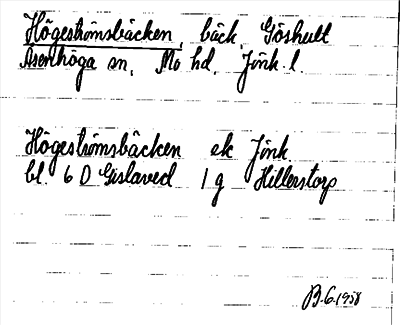 Högeströmsbäcken, bäck, Göshult
Åsenhöga sn, Mo hd, Jönk. l.
Högeströmsbäcken ek Jönk.
bl. 6 D Gislaved 1 g Hillerstorp
B.G. 1958